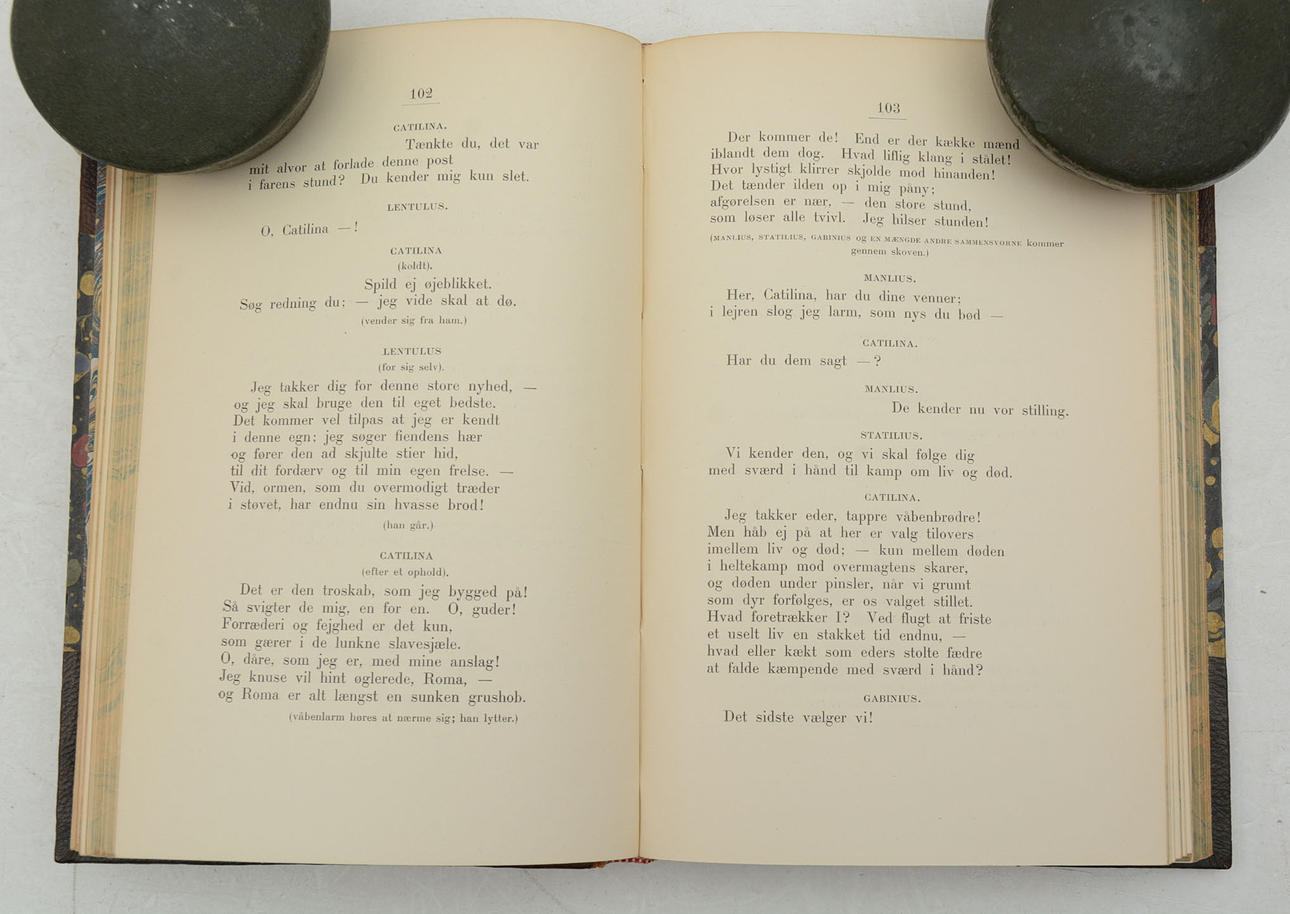 102
CATILINA.
Tænkte du, det var
mit alvor at forlade denne post
i farens stund? Du kender mig kun slet.
LENTULUS.
O, Catilina — !
CATILINA
(koldt).
Spild ej øjeblikket.
Søg redning du; — jeg vide skal at dø.
(vender sig fra ham.)
LENTULUS
(for sig selv).
Jeg takker dig for denne store nyhed, —
og jeg skal bruge den til eget bedste.
Det kommer vel tilpas at jeg er kendt
i denne egn; jeg søger fiendens hær
og fører den ad skjulte stier hid,
til dit fordærv og til min egen frelse. —
Vid, ormen, som du overmodigt træder
i støvet, har endnu sin hvasse brod!
(han går.)
CATILINA
(efter et ophold).
Det er den troskab, som jeg bygged på!
Så svigter de mig, en for en. O, guder!
Forræderi og fejghed er det kun,
som gærer i de lunkne slavesjæle.
O, dåre, som jeg er, med mine anslag!
Jeg knuse vil hint øglerede, Roma, —
og Roma er alt længst en sunken grushob.
(våbenlarm høres at nærme sig; han lytter.)
103
Der kommer de! End er der kække mænd
iblandt dem dog. Hvad liflig klang i stålet!
Hvor lystigt klirrer skjolde mod hinanden!
Det tænder ilden op i mig påny;
afgørelsen er nær, — den store stund,
som løser alle tvivl. Jeg hilser stunden!
(MANLIUS, STATILIUS, GABINIUS og EN MÆNGDE ANDRE SAMMENSVORNE kommer
gennem skoven.)
MANLIUS.
Her, Catilina, har du dine venner;
i lejren slog jeg larm, som nys du bød —
CATILINA.
Har du dem sagt — ?
MANLIUS.
De kender nu vor stilling.
STATILIUS.
Vi kender den, og vi skal følge dig
med sværd i hånd til kamp om liv og død.
CATILINA.
Jeg takker eder, tappre våbenbrødre!
Men håb ej på at her er valg tilovers
imellem liv og død; — kun mellem døden
i heltekamp mod overmagtens skarer,
og døden under pinsler, når vi grumt
som dyr forfølges, er os valget stillet.
Hvad foretrækker I? Ved flugt at friste
et uselt liv en stakket tid endnu, —
hvad eller kækt som eders stolte fædre
at falde kæmpende med sværd i hånd?
GABINIUS.
Det sidste vælger vi!